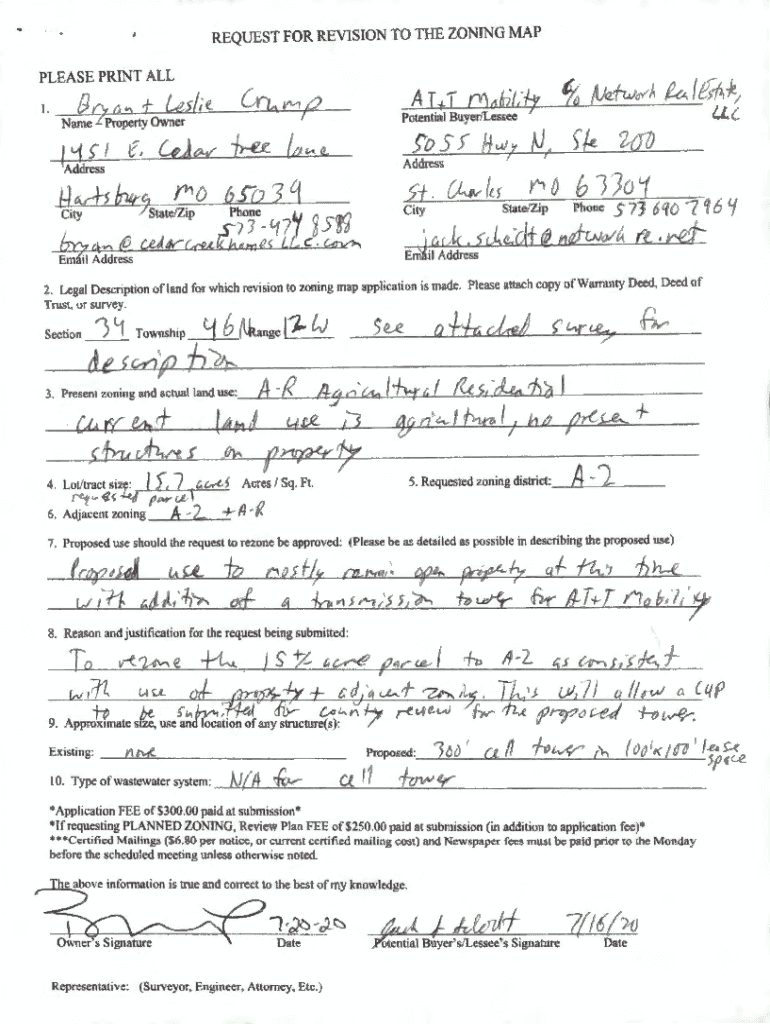 REQUEST FOR REVISION TO THE ZONING MAP
PLEASE PRINT ALL
1. Bryan + Leslie Crump AT+T Mobility c/o Network Real Estate, LLC
Name - Property Owner Potential Buyer/Lessee
1451 E. Cedar tree lane 5055 Hwy N, Ste 200
Address Address
Hartsburg MO 65039 St. Charles MO 63304
City State/Zip Phone City State/Zip Phone 573 690 7964
573-474 8588
bryan@cedarcreekhomesLLC.com jack.scheidt@network re.net
Email Address Email Address
2. Legal Description of land for which revision to zoning map application is made. Please attach copy of Warranty Deed, Deed of
Trust, or survey.
Section 34 Township 46 N Range 12W See attached survey for
description
3. Present zoning and actual land use: A-R Agricultural Residential
current land use is agricultural, no present
structures on property
4. Lot/tract size: 15.7 acres Acres / Sq. Ft. 5. Requested zoning district: A-2
requested parcel
6. Adjacent zoning A-2 + A-R
7. Proposed use should the request to rezone be approved: (Please be as detailed as possible in describing the proposed use)
Proposed use to mostly remain open property at this time
with addition of a transmission tower for AT+T Mobility
8. Reason and justification for the request being submitted:
To rezone the 15+/- acre parcel to A-2 as consistent
with use of property + adjacent zoning. This will allow a CUP
to be submitted for county review for the proposed tower.
9. Approximate size, use and location of any structure(s):
Existing: none Proposed: 300' cell tower in 100'x100' lease
space
10. Type of wastewater system: N/A for cell tower
*Application FEE of $300.00 paid at submission*
*If requesting PLANNED ZONING, Review Plan FEE of $250.00 paid at submission (in addition to application fee)*
***Certified Mailings ($6.80 per notice, or current certified mailing cost) and Newspaper fees must be paid prior to the Monday
before the scheduled meeting unless otherwise noted.
The above information is true and correct to the best of my knowledge.
7-20-20 7/16/20
Owner's Signature Date Potential Buyer's/Lessee's Signature Date
Representative: (Surveyor, Engineer, Attorney, Etc.)